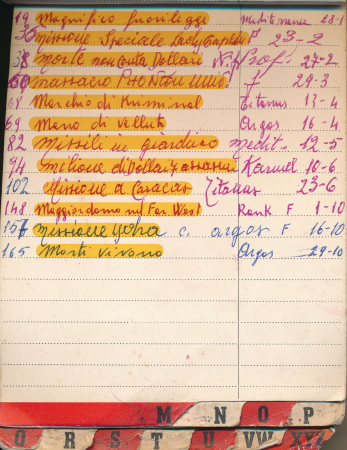 19 Magnifico fuorilegge Mediterranea 28-1
30 Missione Speciale Lady Chaplin F 23-2
38 Morte non conta Dollari N.f. Prof. 27-2
60 massacro PHANTOM 29-3
68 Marchio di Kriminal Titanus 13-4
69 Mano di velluto Argos 16-4
82 Missili in giardino Medit. 12-5
94 milione di dollari x assassini Karuel 10-6
102 Missione a Caracas Titanus 23-6
148 Maggiordomo nel Far West Rank F 1-10
157 Missione c. argos F 16-10
165 Morti vivono Argos 29-10
M N O P
Q R S T U VW XYZ